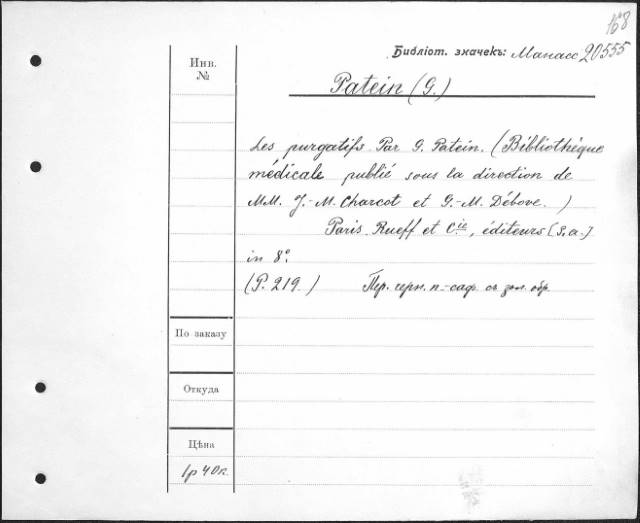 168
Библіот. значекъ: Манасс 20555
Инв.
№
Patein (G.)
Les purgatifs. Par G. Patein. (Bibliothèque
médicale publié sous la direction de
MM. J.-M. Charcot et G.-M. Débove.)
Paris. Rueff et Cie, éditeurs [S.a.]
in 8°.
(P. 219.) Пер. черн. п.-саф. съ зол. обр.
По заказу
Откуда
Цѣна
1р 40к.